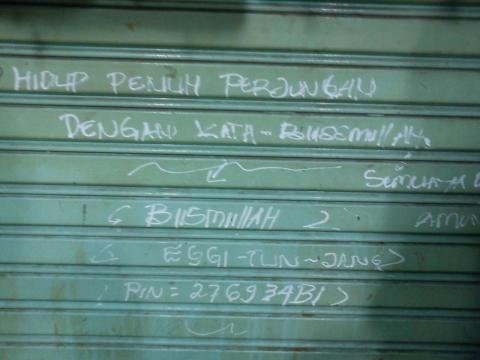 HIDUP PENUH PERJUNGAN
DENGAN KATA-BISSMILLAH.
< BIISMILLAH >
< EGGI-TUN-JANG >
PIN = 276934B1 >